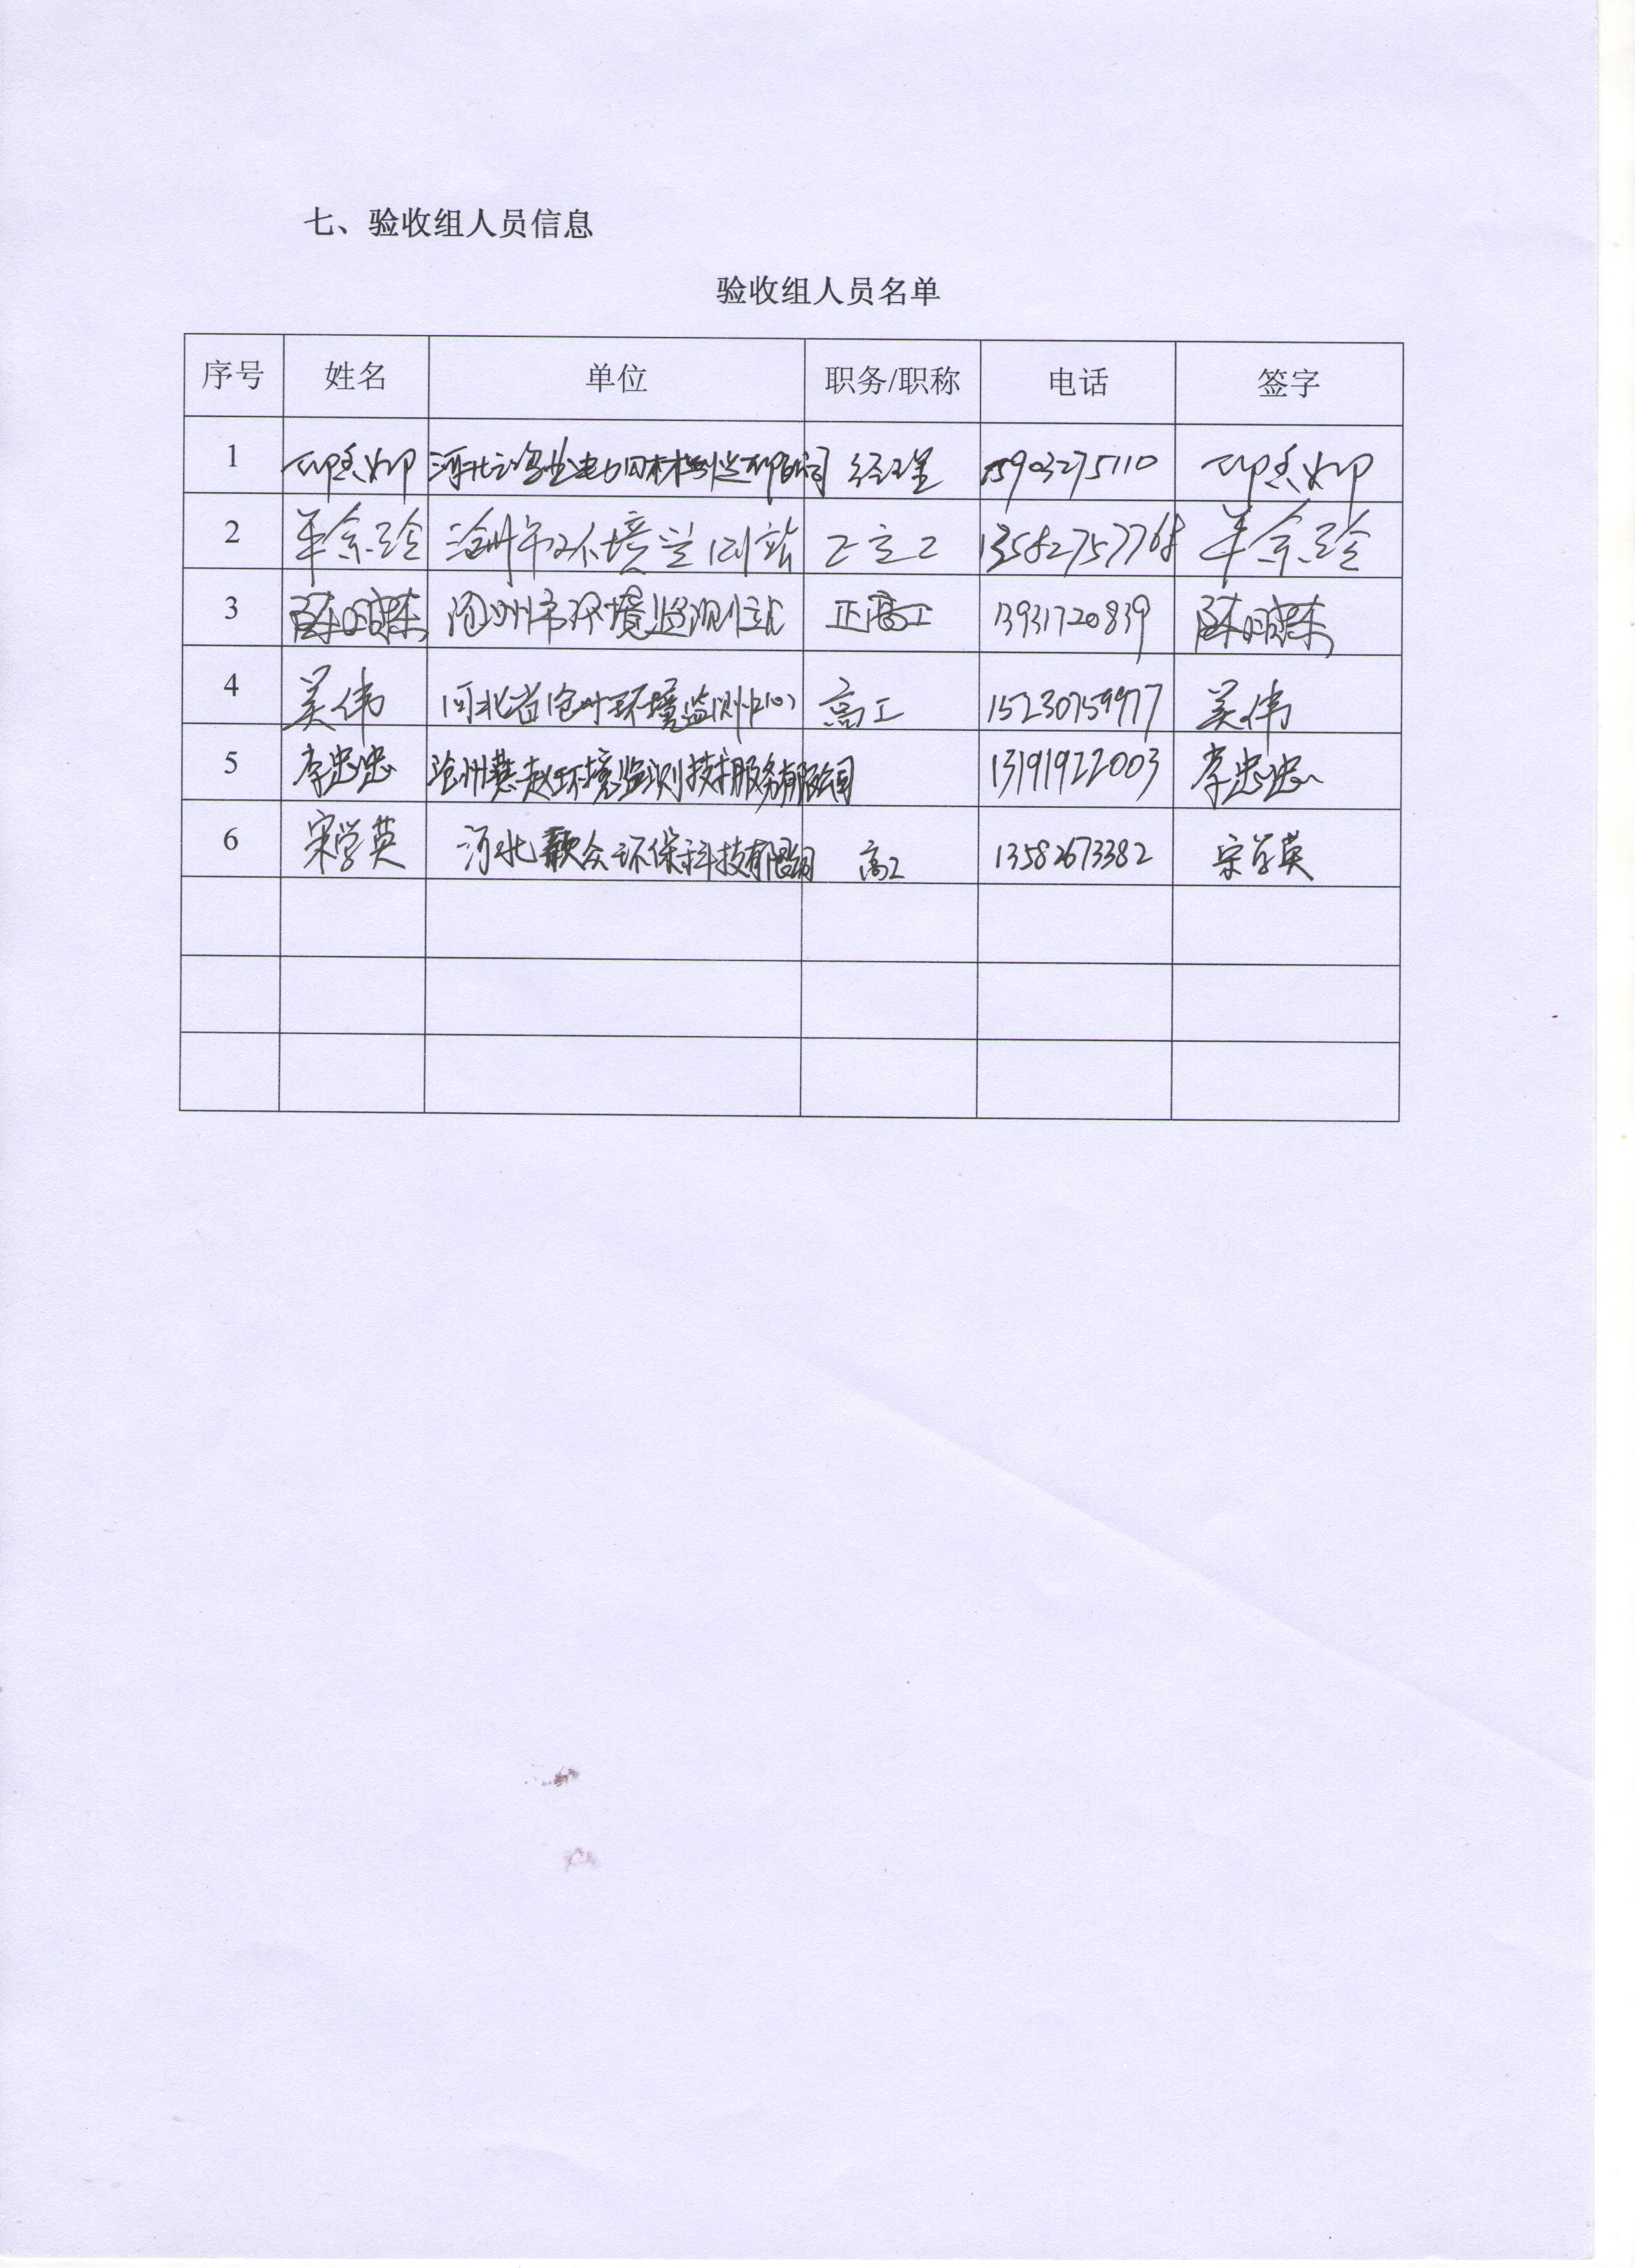 七、验收组人员信息
验收组人员名单
序号 姓名 单位 职务/职称 电话 签字
1 经理 15903275110
2 沧州市环境监测站 正高工 13582757768
3 陈晓东 沧州市环境监测站 正高工 13931720839 陈晓东
4 吴伟 河北省沧州环境监测中心 高工 15230759977 吴伟
5 李忠忠 沧州燕赵环境监测技术服务有限公司 13191922003 李忠忠
6 宋学英 河北歌众环保科技有限公司 高工 13582673382 宋学英